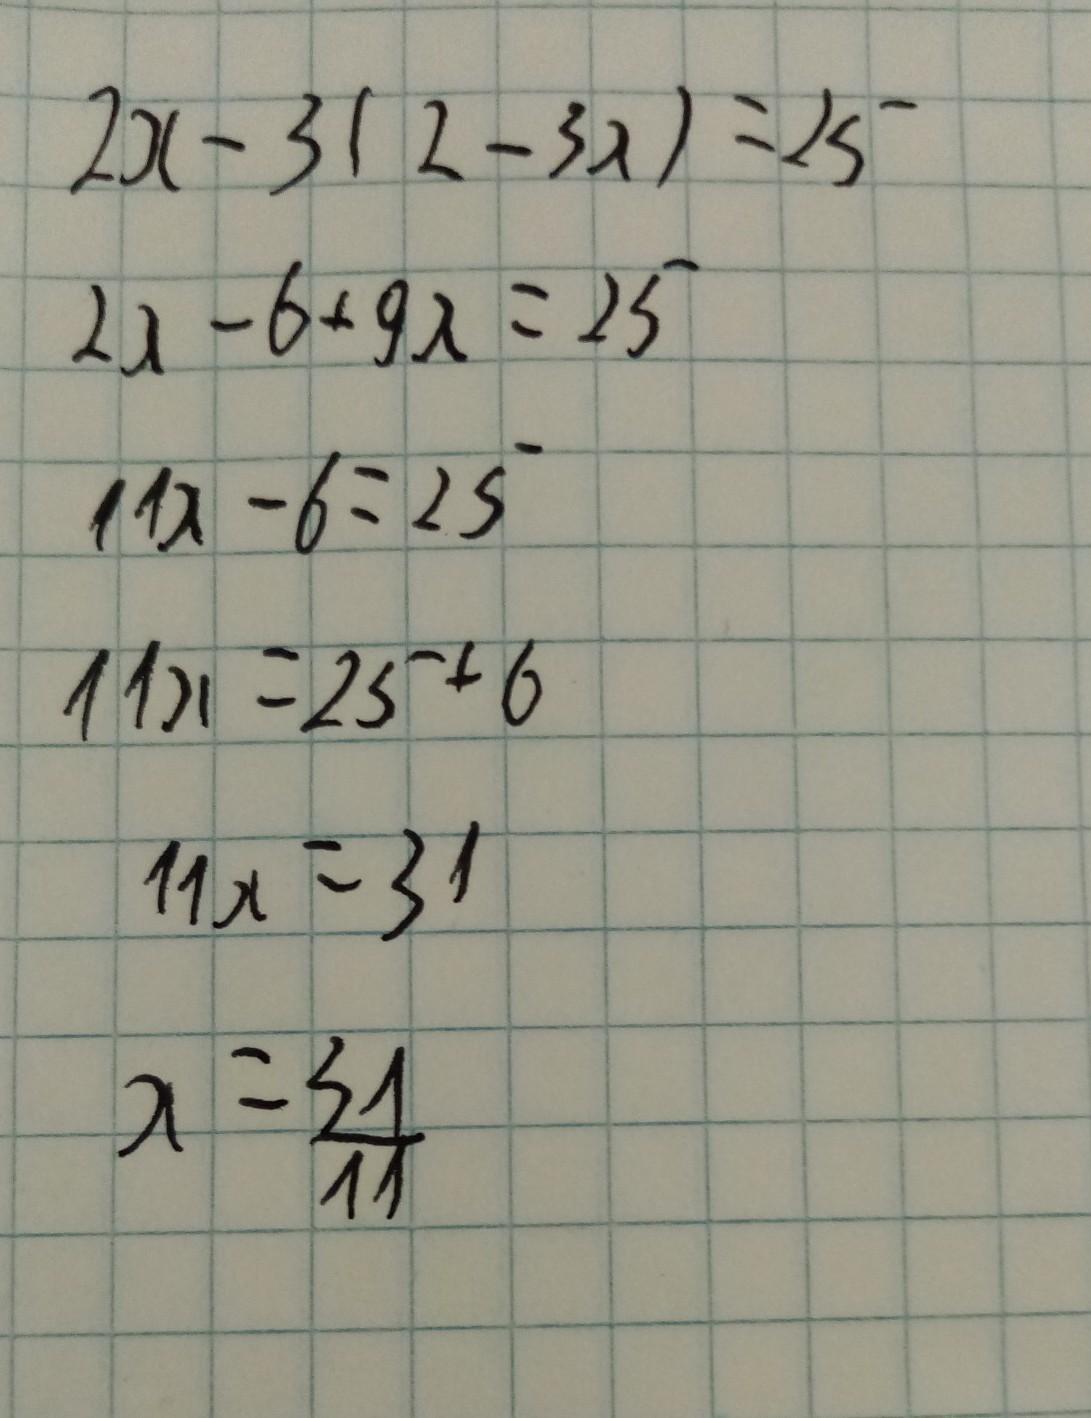 2x - 3(2 - 3x) = 25
2x - 6 + 9x = 25
11x - 6 = 25
11x = 25 + 6
11x = 31
x = 31/11